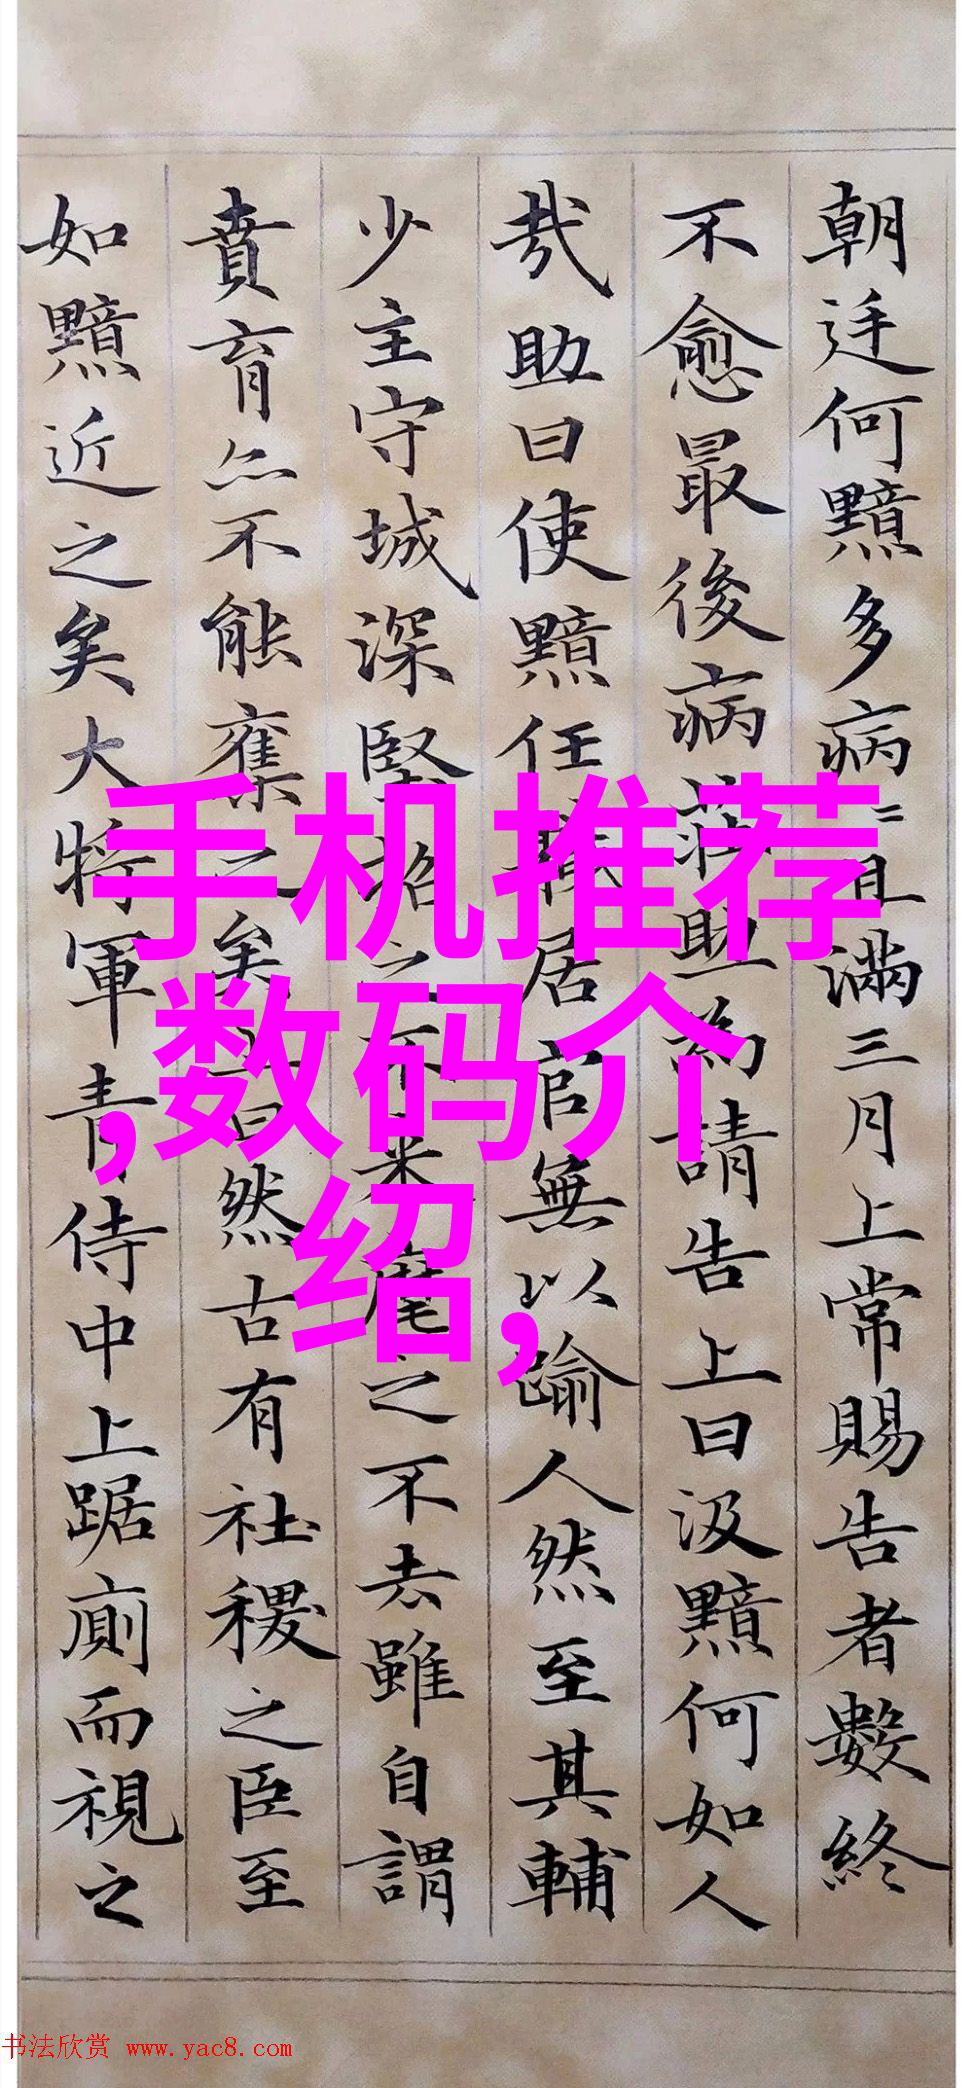 朝廷何黯多病〻且滿三月上常賜告者數終
不愈最後病莊助為請告上曰汲黯何如人
哉助曰使黯任職居官無以踰人然至其輔
少主守城深堅招之不來麾之不去雖自謂
賁育亦不能奪之矣上曰然古有社稷之臣至
如黯近之矣大將軍青侍中上踞廁而視之
手机推荐
,数码介
绍,
书法欣赏 www.yac8.com